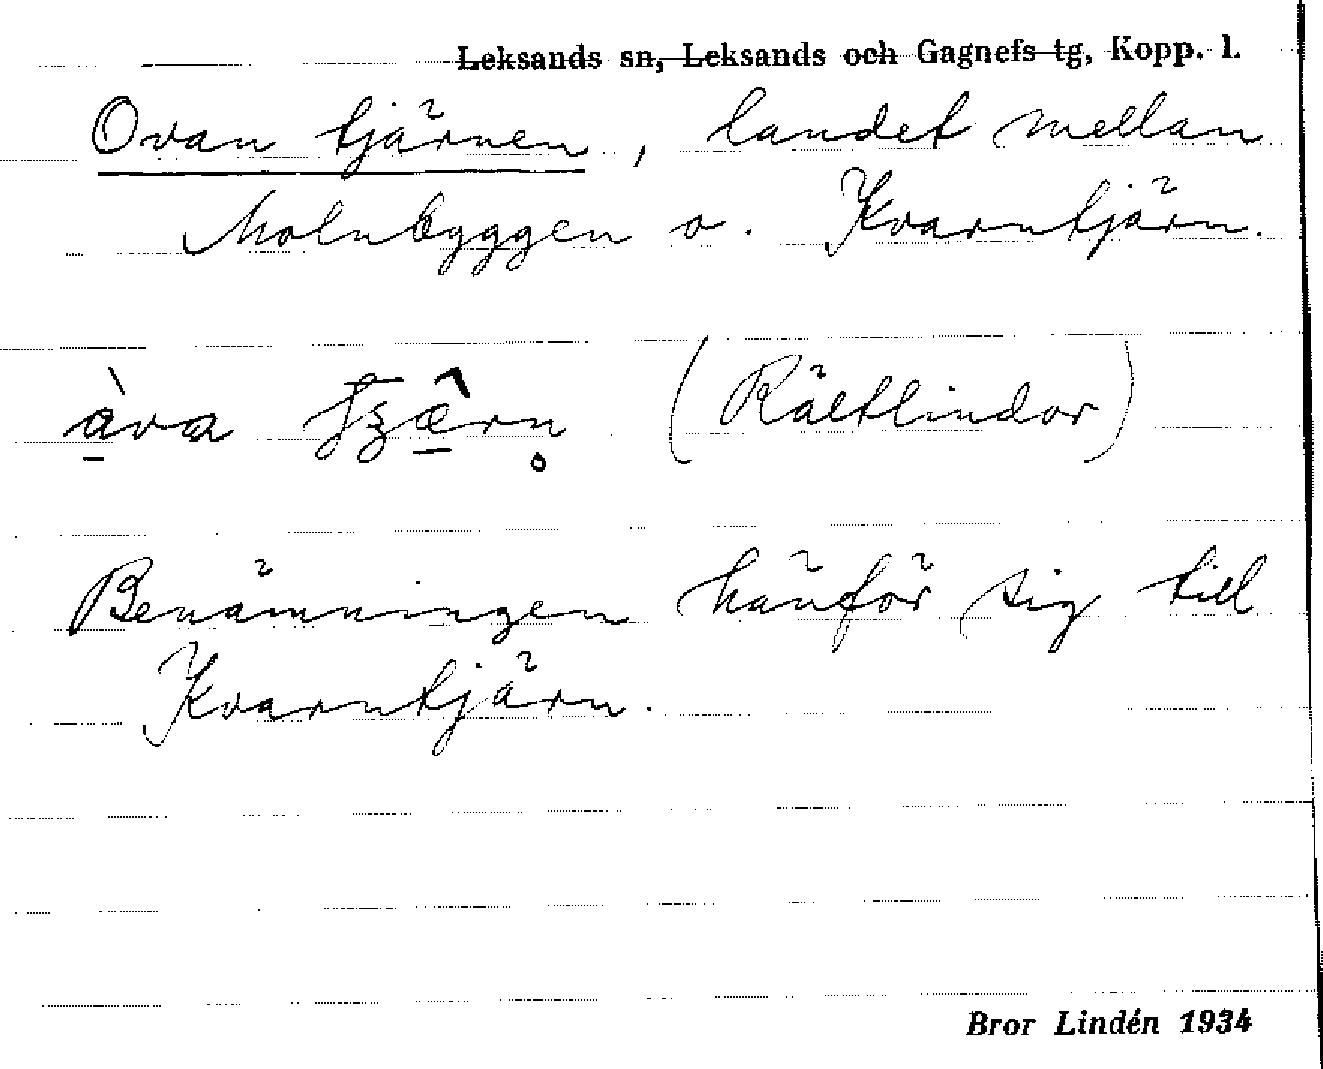 Leksands sn, Leksands och Gagnefs tg, Kopp. l.
Ovan tjärnen, landet mellan
Molnbyggen o. Kvarntjärn.
(Rältlindor)
Benämningen hänför sig till
Kvarntjärn.
Bror Lindén 1934